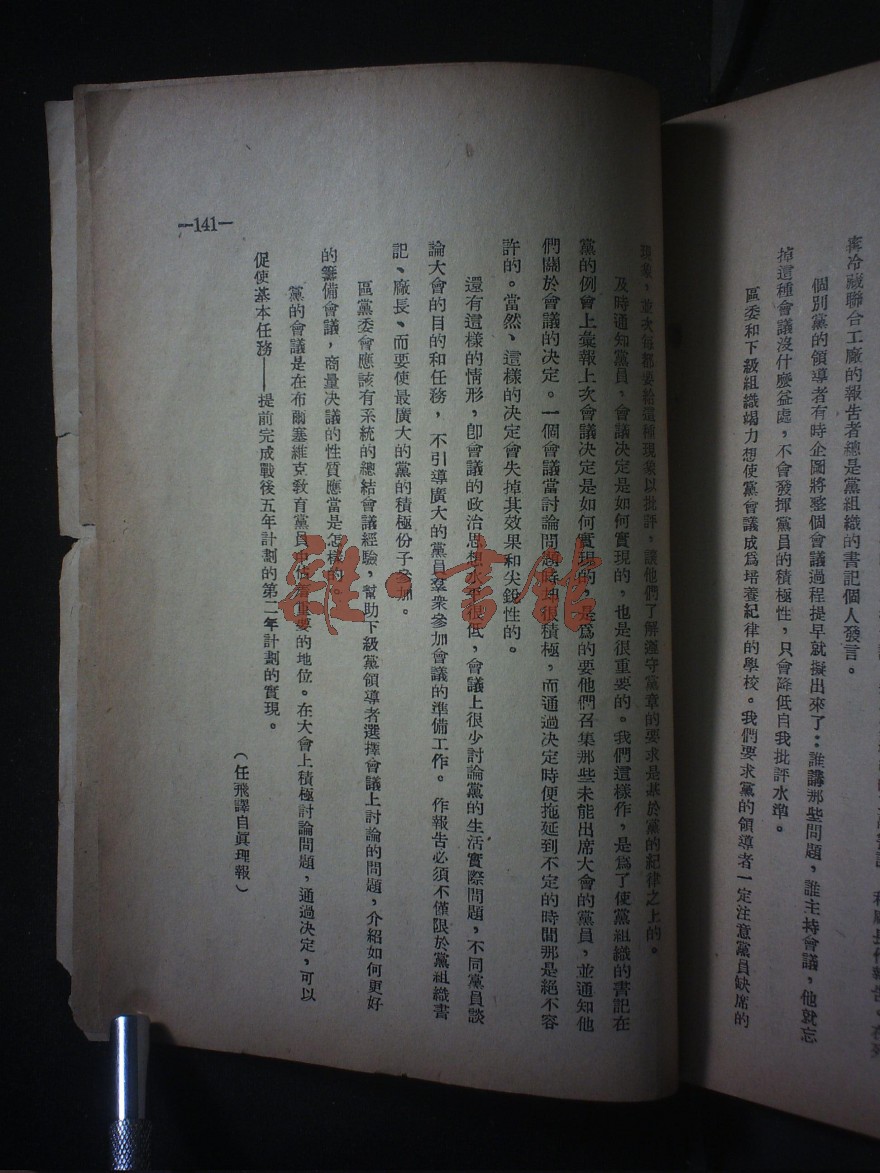 冷藏聯合工廠的報告者總是黨組織的書記個人發言。
個別黨的領導者有時企圖將整個會議過程提早就擬出來了：誰講那些問題，誰主持會議，他就忘
掉這種會議沒什麼益處，不會發揮黨員的積極性，只會降低自我批評水準。
區委和下級組織竭力想使黨會議成爲培養紀律的學校。我們要求黨的領導者一定注意黨員缺席的
現象，並次每都要給這種現象以批評，讓他們了解遵守黨章的要求是基於黨的紀律之上的。
及時通知黨員，會議決定是如何實現的，也是很重要的。我們這樣作，是爲了使黨組織的書記在
黨的例會上彙報上次會議決定是如何實現的，是爲的要他們召集那些未能出席大會的黨員，並通知他
們關於會議的決定。一個會議當討論問題時却很積極，而通過決定時便拖延到不定的時間那是絕不容
許的。當然、這樣的決定會失掉其效果和尖銳性的。
還有這樣的情形，卽會議的政治思想水平很低，會議上很少討論黨的生活實際問題，不同黨員談
論大會的目的和任務，不引導廣大的黨員羣衆參加會議的準備工作。作報告必須不僅限於黨組織書
記、廠長、而要使最廣大的黨的積極份子參加。
區黨委會應該有系統的總結會議經驗，幫助下級黨領導者選擇會議上討論的問題，介紹如何更好
的籌備會議，商量决議的性質應當是怎樣的。
黨的會議是在布爾塞維克敎育黨員中佔着重要的地位。在大會上積極討論問題，通過決定，可以
促使基本任務——提前完成戰後五年計劃的第二年計劃的實現。
（任飛譯自眞理報）
—141—
雜·書館